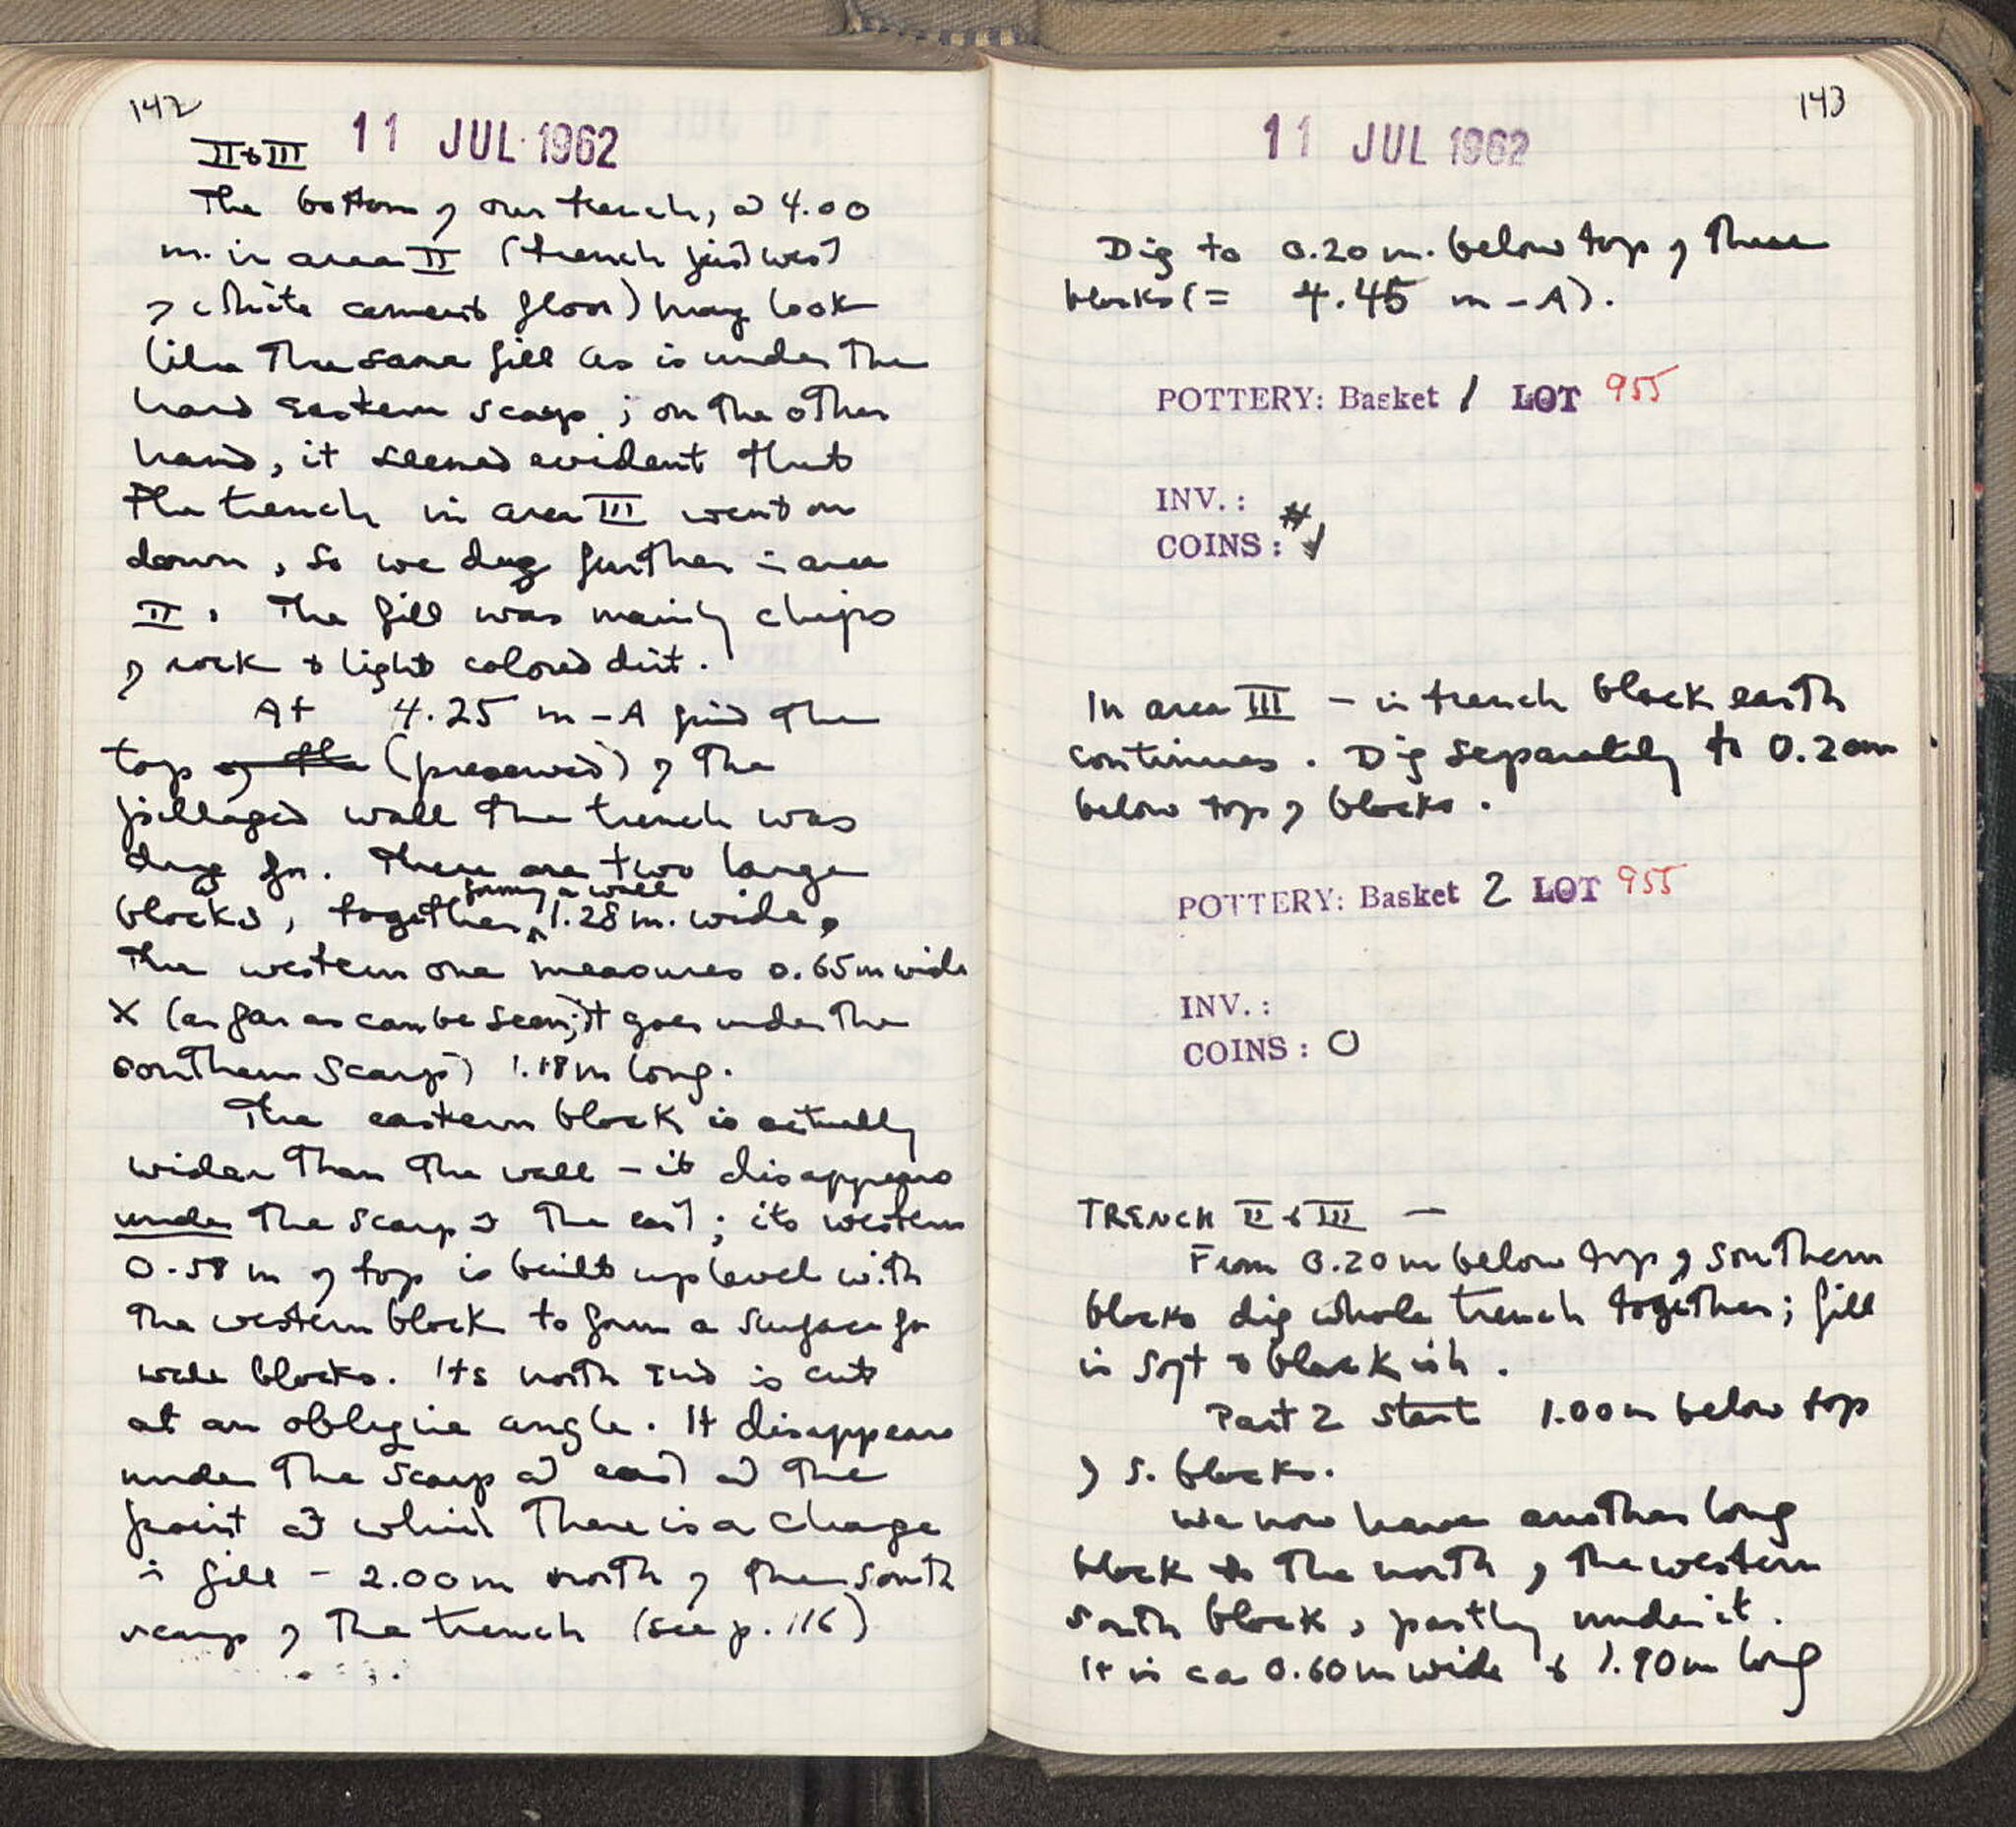 142
II & III 11 JUL 1962
The bottom of our trench, at 4.00
m. in area II (trench just west
of white cement floor) may look
like the same fill as is under the
hard eastern scarp; on the other
hand, it seemed evident that
the trench in area III went on
down, so we dug further in area
II. The fill was mainly chips
of rock & light colored dirt.
At 4.25 m - A find the
top of the (preserved) of the
pillaged wall the trench was
dug for. There are two large
forming a wall
blocks, together 1.28 m. wide.
The western one measures 0.65 m wide
X (as far as can be seen; it goes under the
southern scarp) 1.18 m long.
The eastern block is actually
wider than the wall - it disappears
under the scarp at the east; its western
0.58 m of top is built up level with
the western block to form a surface for
wide blocks. Its north end is cut
at an oblique angle. It disappears
under the scarp at east at the
point at which there is a change
in fill - 2.00 m north of the south
scarp of the trench (see p. 116)
143
11 JUL 1962
Dig to 0.20 m. below top of these
blocks (= 4.45 m - A).
POTTERY: Basket 1 LOT 955
INV.:
COINS: #1
In area III - in trench black earth
continues. Dig separately to 0.20m
below top of blocks.
POTTERY: Basket 2 LOT 955
INV.:
COINS: 0
TRENCH II & III —
From 0.20 m below top of southern
blocks dig whole trench together; fill
is soft & blackish.
Part 2 start 1.00 m below top
of S. blocks.
We now have another long
block to the north of the western
south block, partly under it.
It is ca 0.60 m wide & 1.90 m long